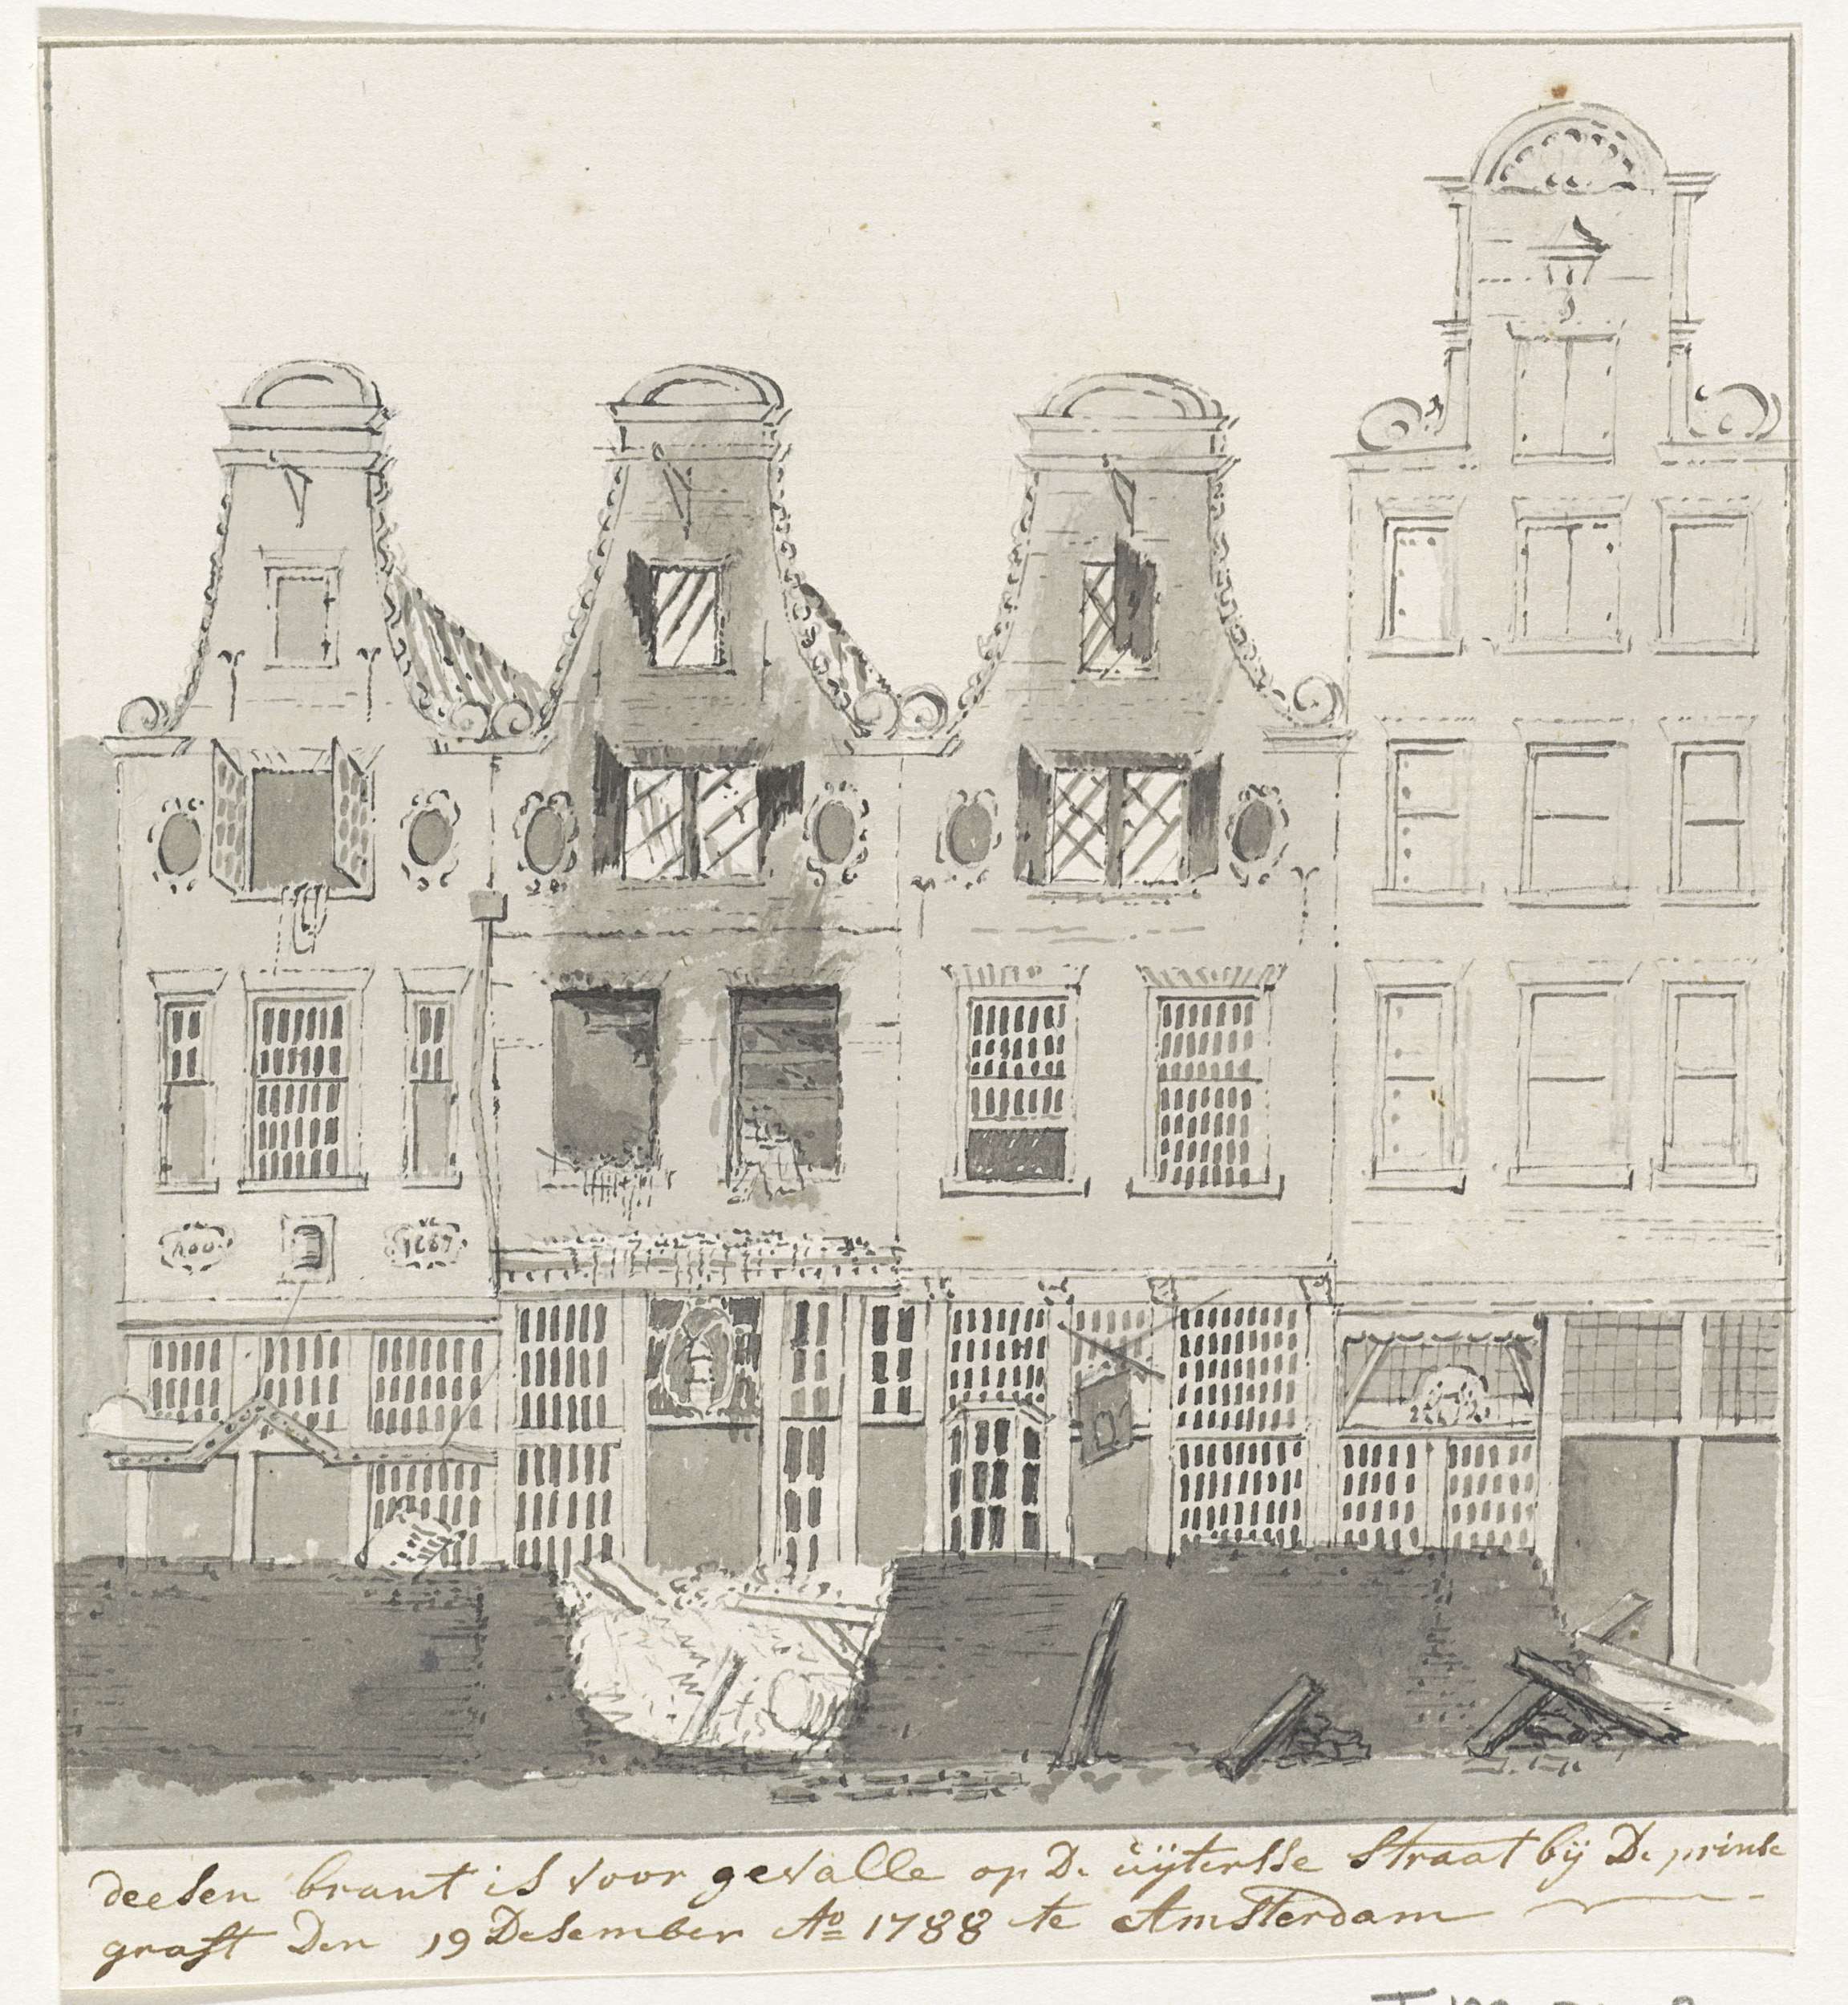 Aoo 1667
deesen brant is voor gevalle op De üÿtersse straat bÿ De prinse
graft Den 19 Desember Ao 1788 te Amsterdam